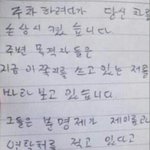 주차 하려다가 당신 차를
손상시켰습니다
주변 목격자들은
지금 이 쪽지를 쓰고 있는 저를
바라보고 있습니다
그들은 분명 제가 제 이름과
연락처를 적고 있다고